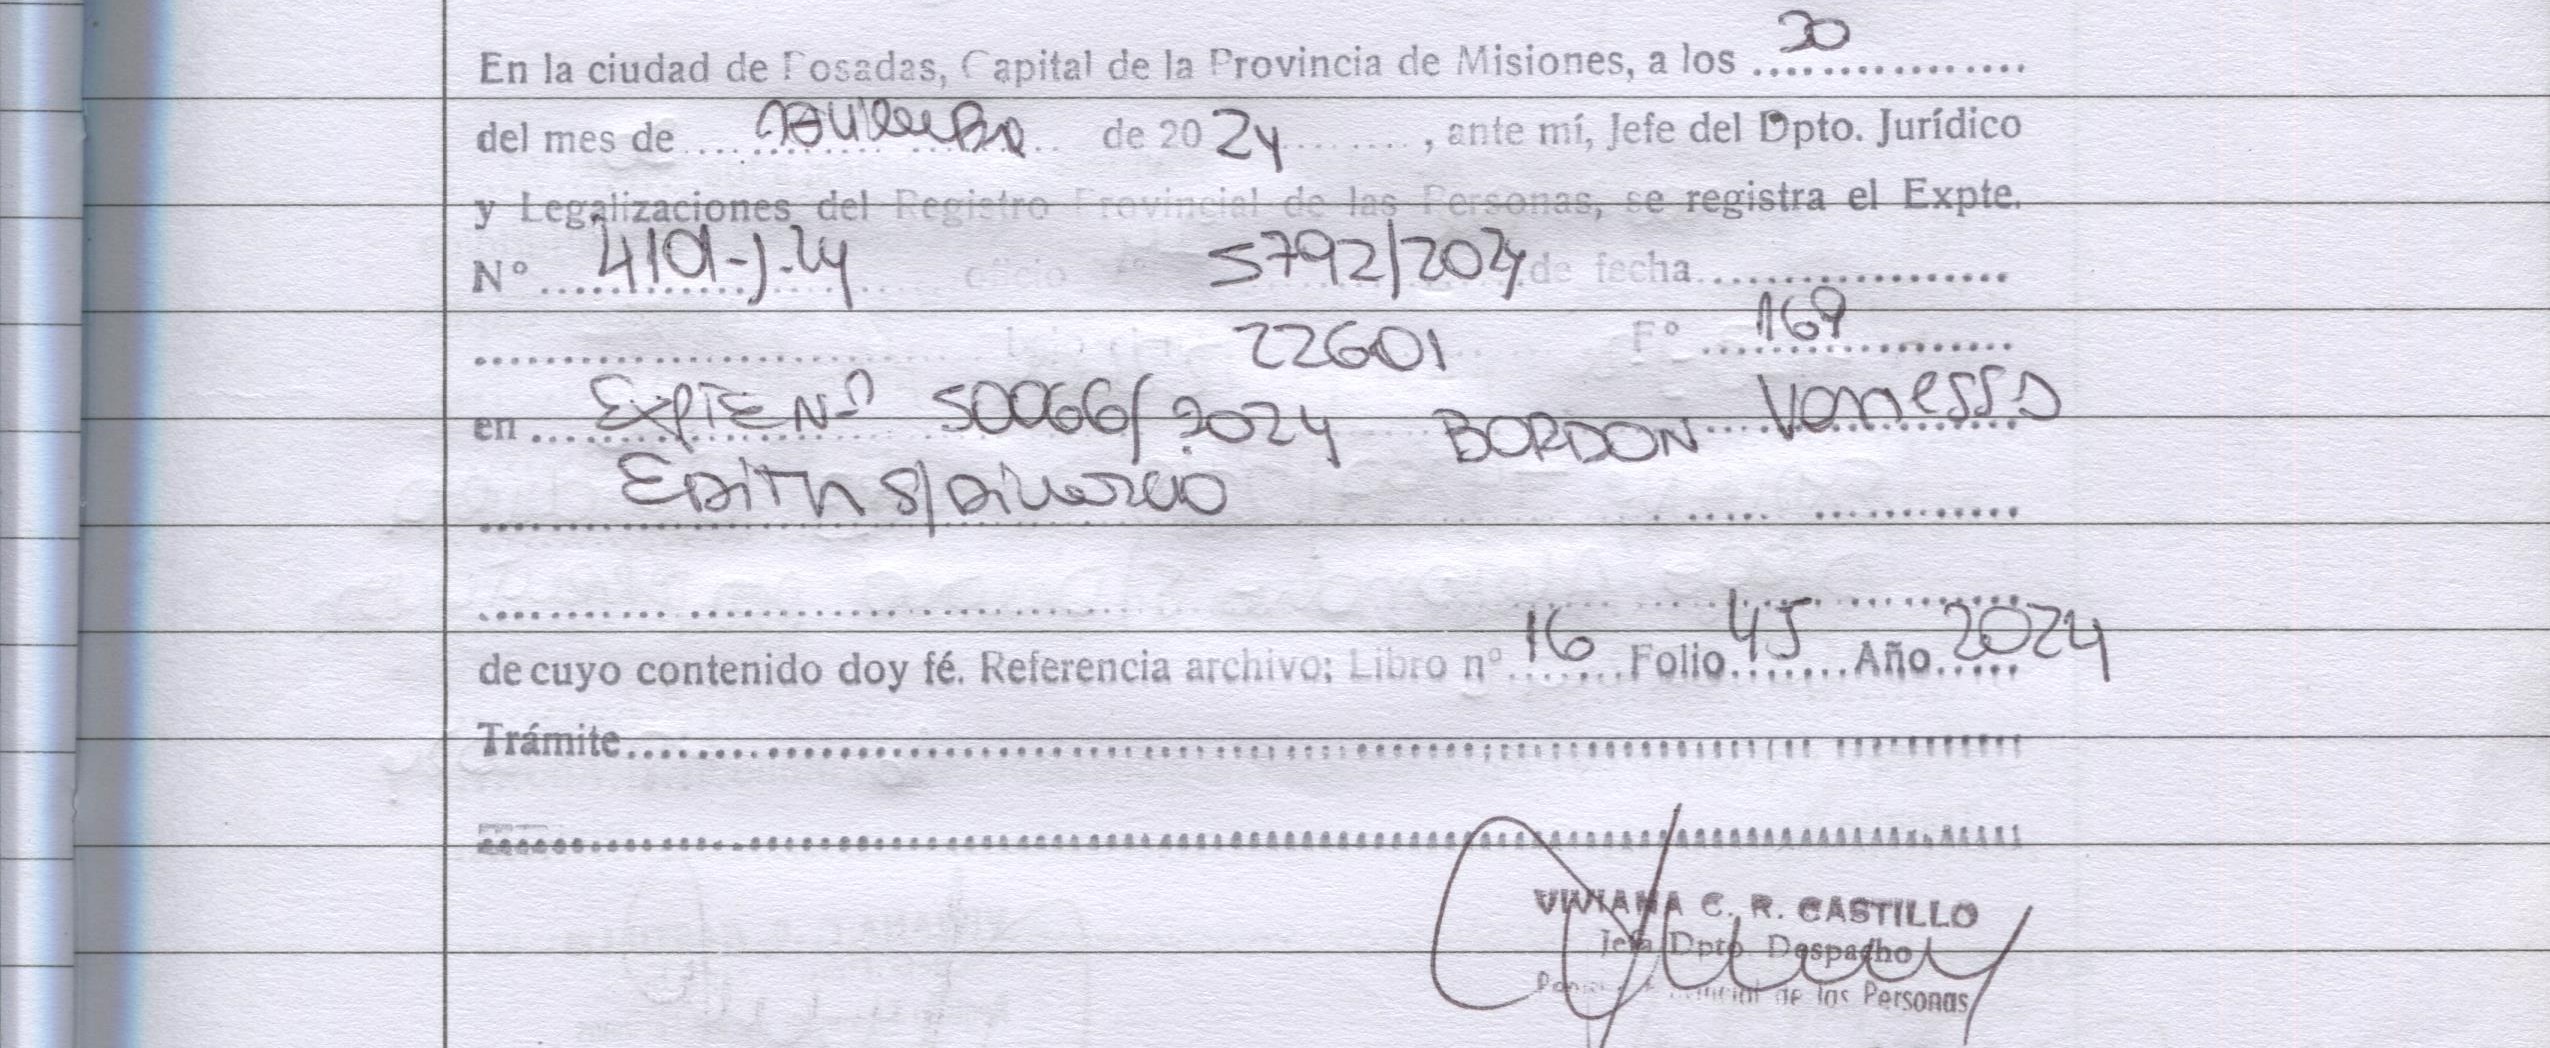 En la ciudad de Posadas, Capital de la Provincia de Misiones, a los 20
del mes de de 20 24 , ante mí, Jefe del Dpto. Jurídico
y Legalizaciones del Registro Provincial de las Personas, se registra el Expte.
N° 4101-J-24 oficio 5792/2024 de fecha
22601 F° 169
en EXPTE Nº 50066/2024 BORDON Vanessa
Edith s/divorcio
de cuyo contenido doy fé. Referencia archivo: Libro nº 16 Folio 45 Año 2024
Trámite
VIVIANA C. R. CASTILLO
Jefa Dpto Despacho
de las Personas